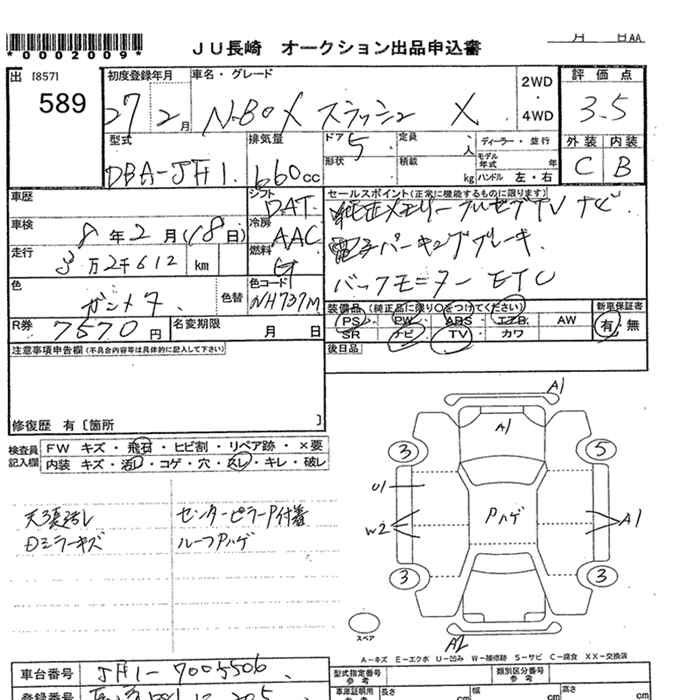 *0002009*
JU長崎 オークション出品申込書
月 日AA
出 [857]
589
初度登録年月
27 2月
車名・グレード
N-BOX スラッシュ X
2WD
・
4WD
評価点
3.5
外装 内装
C B
型式
DBA-JF1.
排気量
660cc
ドア 5
形状
定員 人
積載 kg
ディーラー・並行
モデル年式 年
ハンドル 左・右
車歴
シフト
DAT
セールスポイント(正常に機能するものに限ります)
純正メモリーフルセグTVナビ
電子パーキングブレーキ
バックモニター ETC
車検
8年2月(18日)
冷房
AAC
走行
3万2千612 km
燃料
G
色
ガンメタ
色替
色コード
NH737M
装備品(純正品に限り○をつけてください)
PS PW ABS エアB AW
SR ナビ TV カワ
新車保証書
有・無
R券 7570円
名変期限 月 日
後日品
注意事項申告欄(不具合内容等は具体的に記入して下さい)
修復歴 有〔箇所 〕
検査員記入欄
FW キズ・飛石・ヒビ割・リペア跡・×要
内装 キズ・汚レ・コゲ・穴・スレ・キレ・破レ
天張汚レ
Dミラーキズ
センターピラーP付着
ルーフPハゲ
A1
A1
3
5
U1
W2
Pハゲ
A1
3
3
スペア
A2
A-キズ E-エクボ U-凹み W-補修跡 S-サビ C-腐食 XX-交換済
車台番号 JF1-7005506
型式指定番号 参考
類別区分番号 参考
車庫証明用 参考
長さ cm
幅 cm
高さ cm